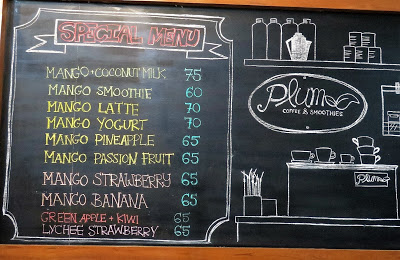 SPECIAL MENU
MANGO + COCONUT MILK 75
MANGO SMOOTHIE 60
MANGO LATTE 70
MANGO YOGURT 70
MANGO PINEAPPLE 65
MANGO PASSION FRUIT 65
MANGO STRAWBERRY 65
MANGO BANANA 65
GREEN APPLE + KIWI 65
LYCHEE STRAWBERRY 65
Plum
COFFEE & SMOOTHIES
Plum